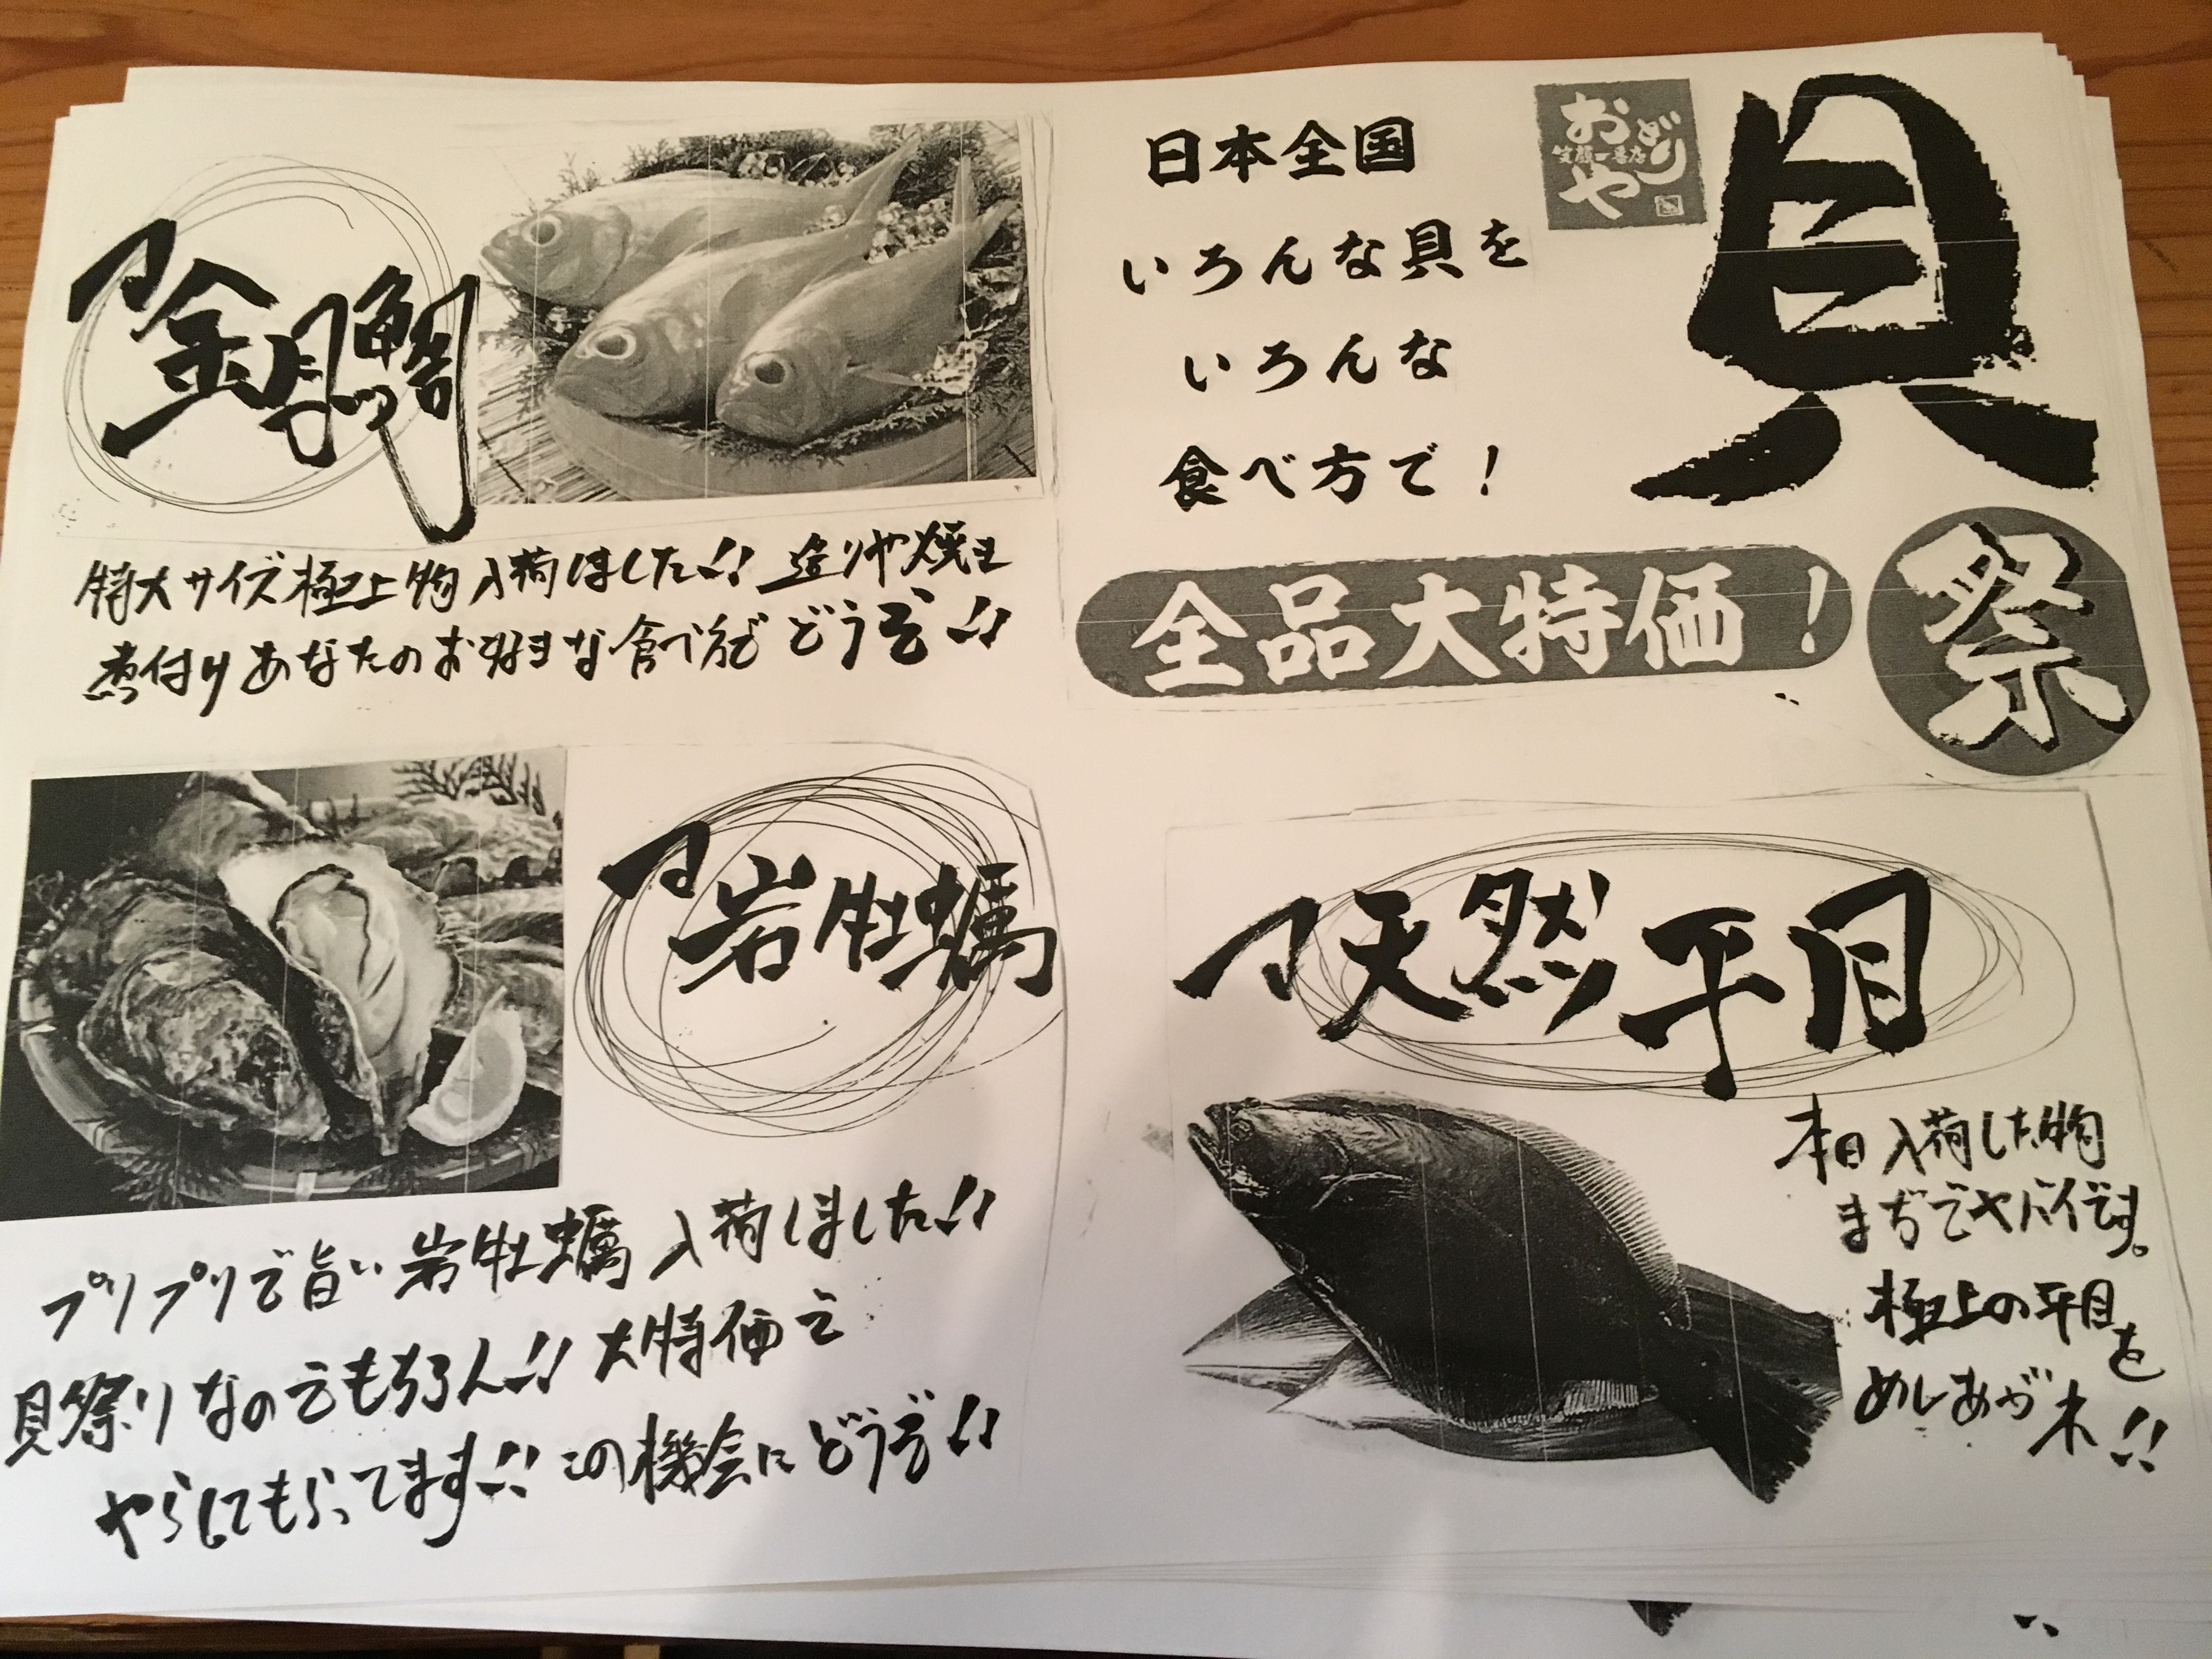 貝
祭
おどりや
笑顔一番店
日本全国
いろんな貝を
いろんな
食べ方で！
全品大特価！
金目鯛
特大サイズ極上物入荷しました!! 造りや焼き
煮付けあなたのお好きな食べ方で どうぞ!!
岩牡蠣
プリプリで旨い岩牡蠣入荷しました!!
貝祭りなのでもちろん!! 大特価で
やらしてもらってます!! この機会にどうぞ!!
天然平目
本日入荷した物
まぢでヤバイです。
極上の平目を
めしあがれ!!